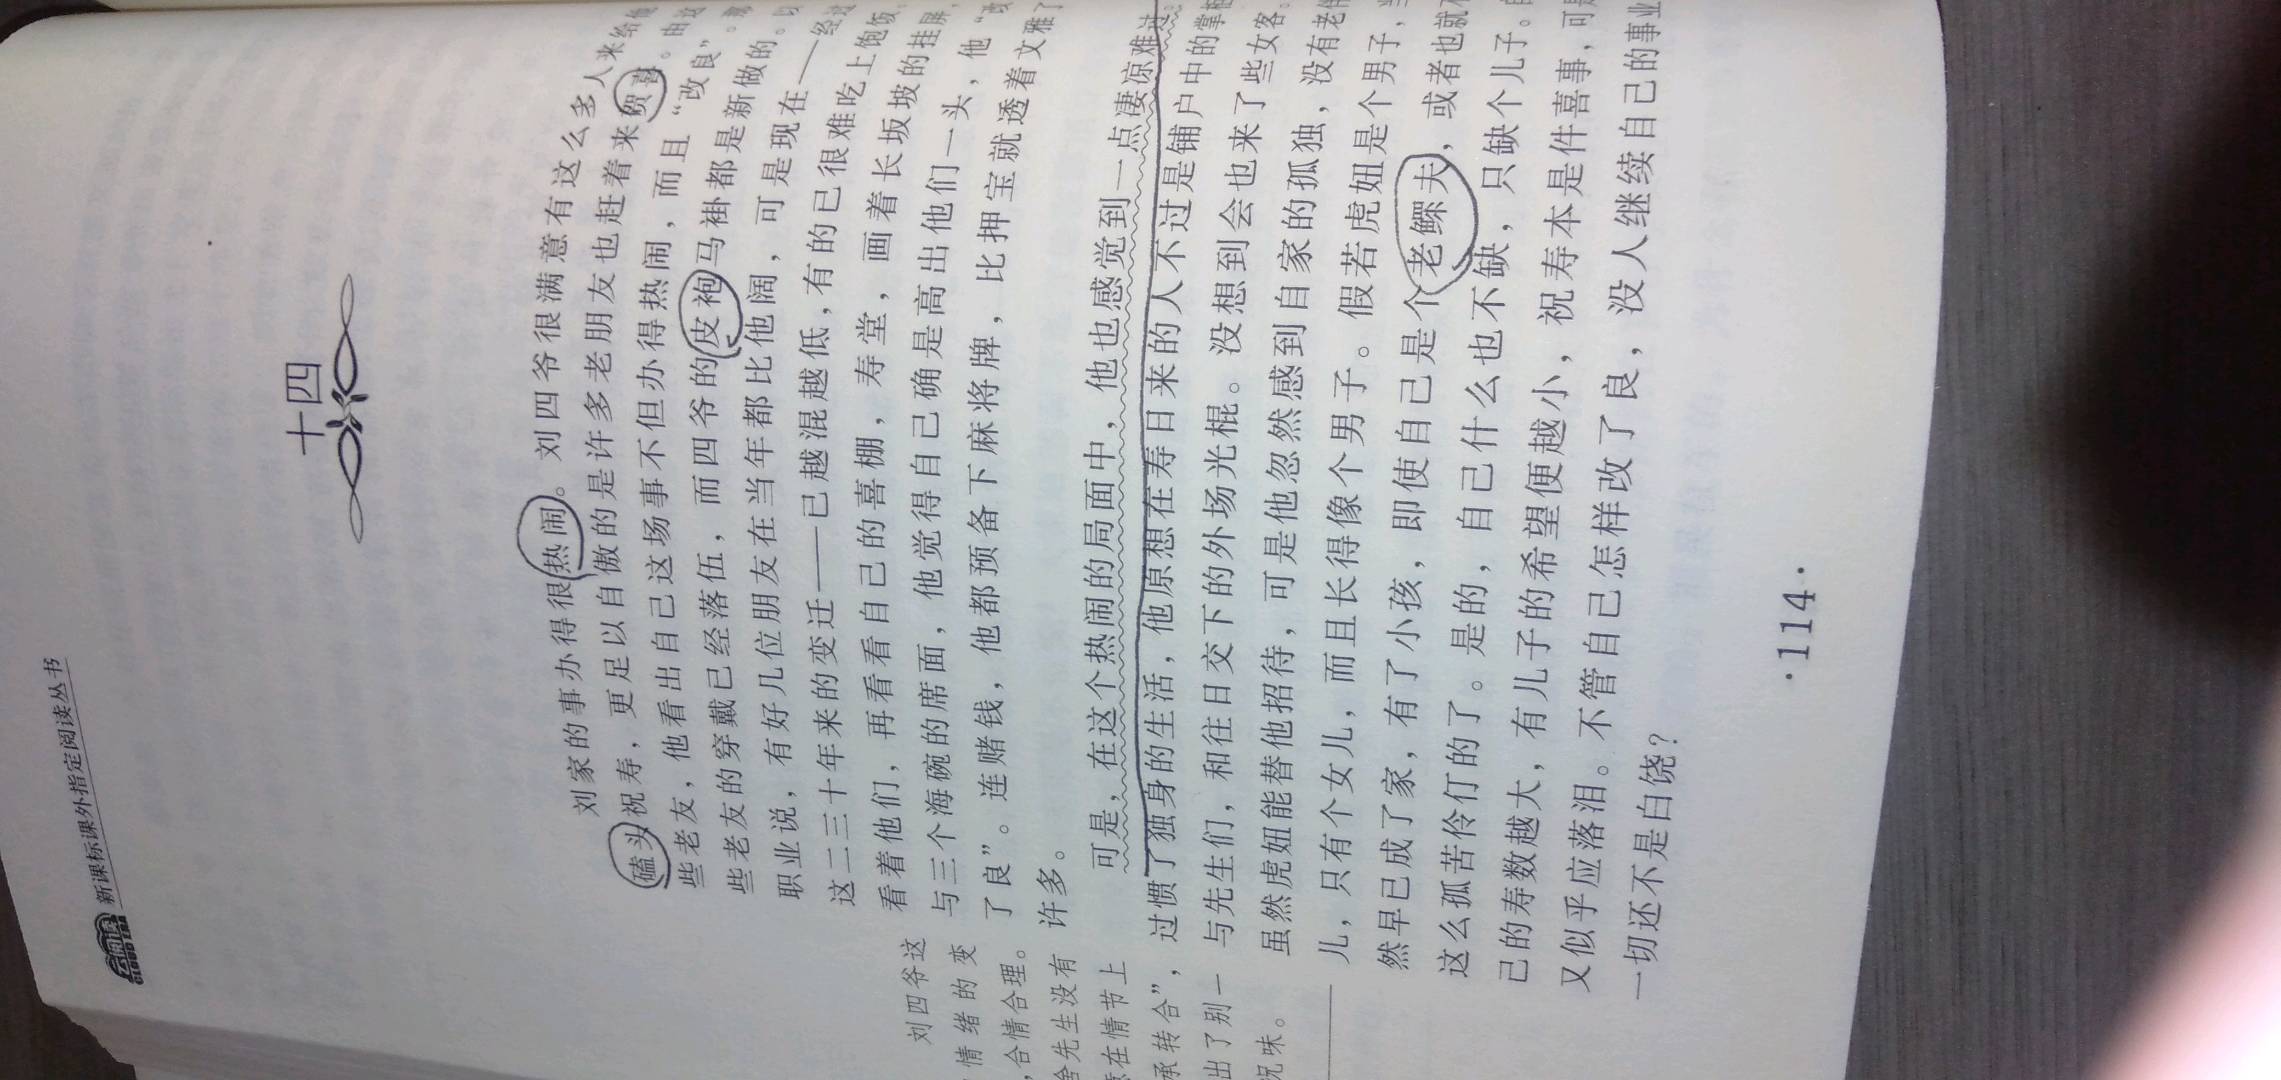 新课标课外指定阅读丛书
十四
刘家的事办得很热闹。刘四爷很满意有这么多人来给他
磕头祝寿，更足以自傲的是许多老朋友也赶着来贺喜。由这
些老友，他看出自己这场事不但办得热闹，而且“改良”。那
些老友的穿戴已经落伍，而四爷的皮袍马褂都是新做的。以
职业说，有好几位朋友在当年都比他阔，可是现在——经过
这二三十年来的变迁——已越混越低，有的已很难吃上饱饭。
看着他们，再看看自己的喜棚，寿堂，画着长坂坡的挂屏，
与三个海碗的席面，他觉得自己确是高出他们一头，他“改
了良”。连赌钱，他都预备下麻将牌，比押宝就透着文雅了
许多。
可是，在这个热闹的局面中，他也感觉到一点凄凉难过。
过惯了独身的生活，他原想在寿日来的人不过是铺户中的掌柜
与先生们，和往日交下的外场光棍。没想到会也来了些女客。
虽然虎妞能替他招待，可是他忽然感到自家的孤独，没有老伴
儿，只有个女儿，而且长得像个男子。假若虎妞是个男子，当
然早已成了家，有了小孩，即使自己是个老鳏夫，或者也就不
这么孤苦伶仃的了。是的，自己什么也不缺，只缺个儿子。自
己的寿数越大，有儿子的希望便越小，祝寿本是件喜事，可是
又似乎应落泪。不管自己怎样改了良，没人继续自己的事业
一切还不是白饶？
刘四爷这
情绪的变
，合情合理。
舍先生没有
意在情节上
承转合”，
出了别一
况味。
·114·